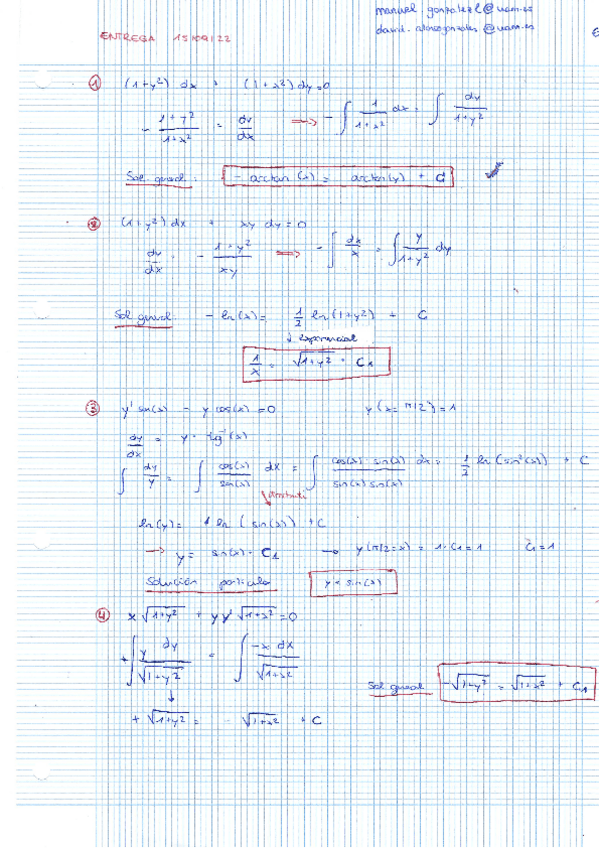 manuel.gonzalezl@uam.es
ENTREGA 15/09/22
① (1+y²) dx + (1+x²) dy = 0
- (1+y²)/(1+x²) = dy/dx ⟹ - ∫ 1/(1+x²) dx = ∫ dy/(1+y²)
Sol general: - arctan(x) = arctan(y) + C
② (1+y²) dx + xy dy = 0
dy/dx = - (1+y²)/(xy) ⟹ - ∫ dx/x = ∫ y/(1+y²) dy
Sol general: - ln(x) = 1/2 ln(1+y²) + C
↓ exponencial
1/x = √(1+y²) · C₁
③ y' sin(x) - y cos(x) = 0 y(x=π/2) = 1
dy/dx = y · tg⁻¹(x)
∫ dy/y = ∫ cos(x)/sin(x) dx = ∫ cos(x) · sin(x)/sin(x) sin(x) dx = 1/2 ln(sin²(x)) + C
ln(y) = 1 ln(sin(x)) + C
→ y = sin(x) · C₁ → y(π/2=x) = 1 · C₁ = 1 C₁ = 1
Solución particular y = sin(x)
④ x √(1+y²) + y y' √(1+x²) = 0
+ ∫ y dy/√(1+y²) = ∫ -x dx/√(1+x²)
Sol general -√(1+y²) = √(1+x²) + C₁
+ √(1+y²) = - √(1+x²) + C